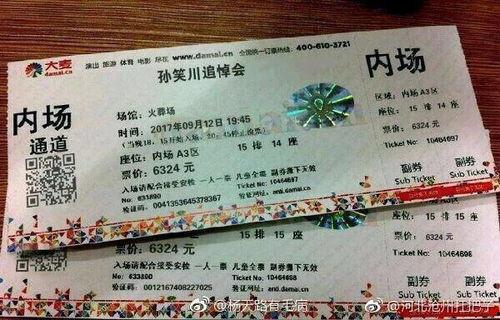 大麦
damai.cn
演出 旅游 体育 电影 尽在 www.damai.cn 全国统一订票热线: 400-610-3721
孙笑川追悼会
内场
通道
场馆: 火葬场
时间: 2017年09月12日 19:45
座位: 内场 A3区 15 排 14 座
票价: 6324 元
入场请配合接受安检 一人一票 儿童全票 副券撕下无效
Ticket No: 10464697
验证码: 0041353645378367
内场
区域: 内场 A3区
座位:
15 排 14 座
票价: 6324 元
Ticket No: 10464697
副券
Sub Ticket
副券
Sub Ticket
15 排 15 座
票价: 6324 元
入场请配合接受安检 一人一票 儿童全票 副券撕下无效
Ticket No: 10464698
验证码: 0012167408227025
15 排 15 座
票价: 6324 元
Ticket No: 10464698
副券
Sub Ticket
副券
Sub Ticket
@杨天路有毛病